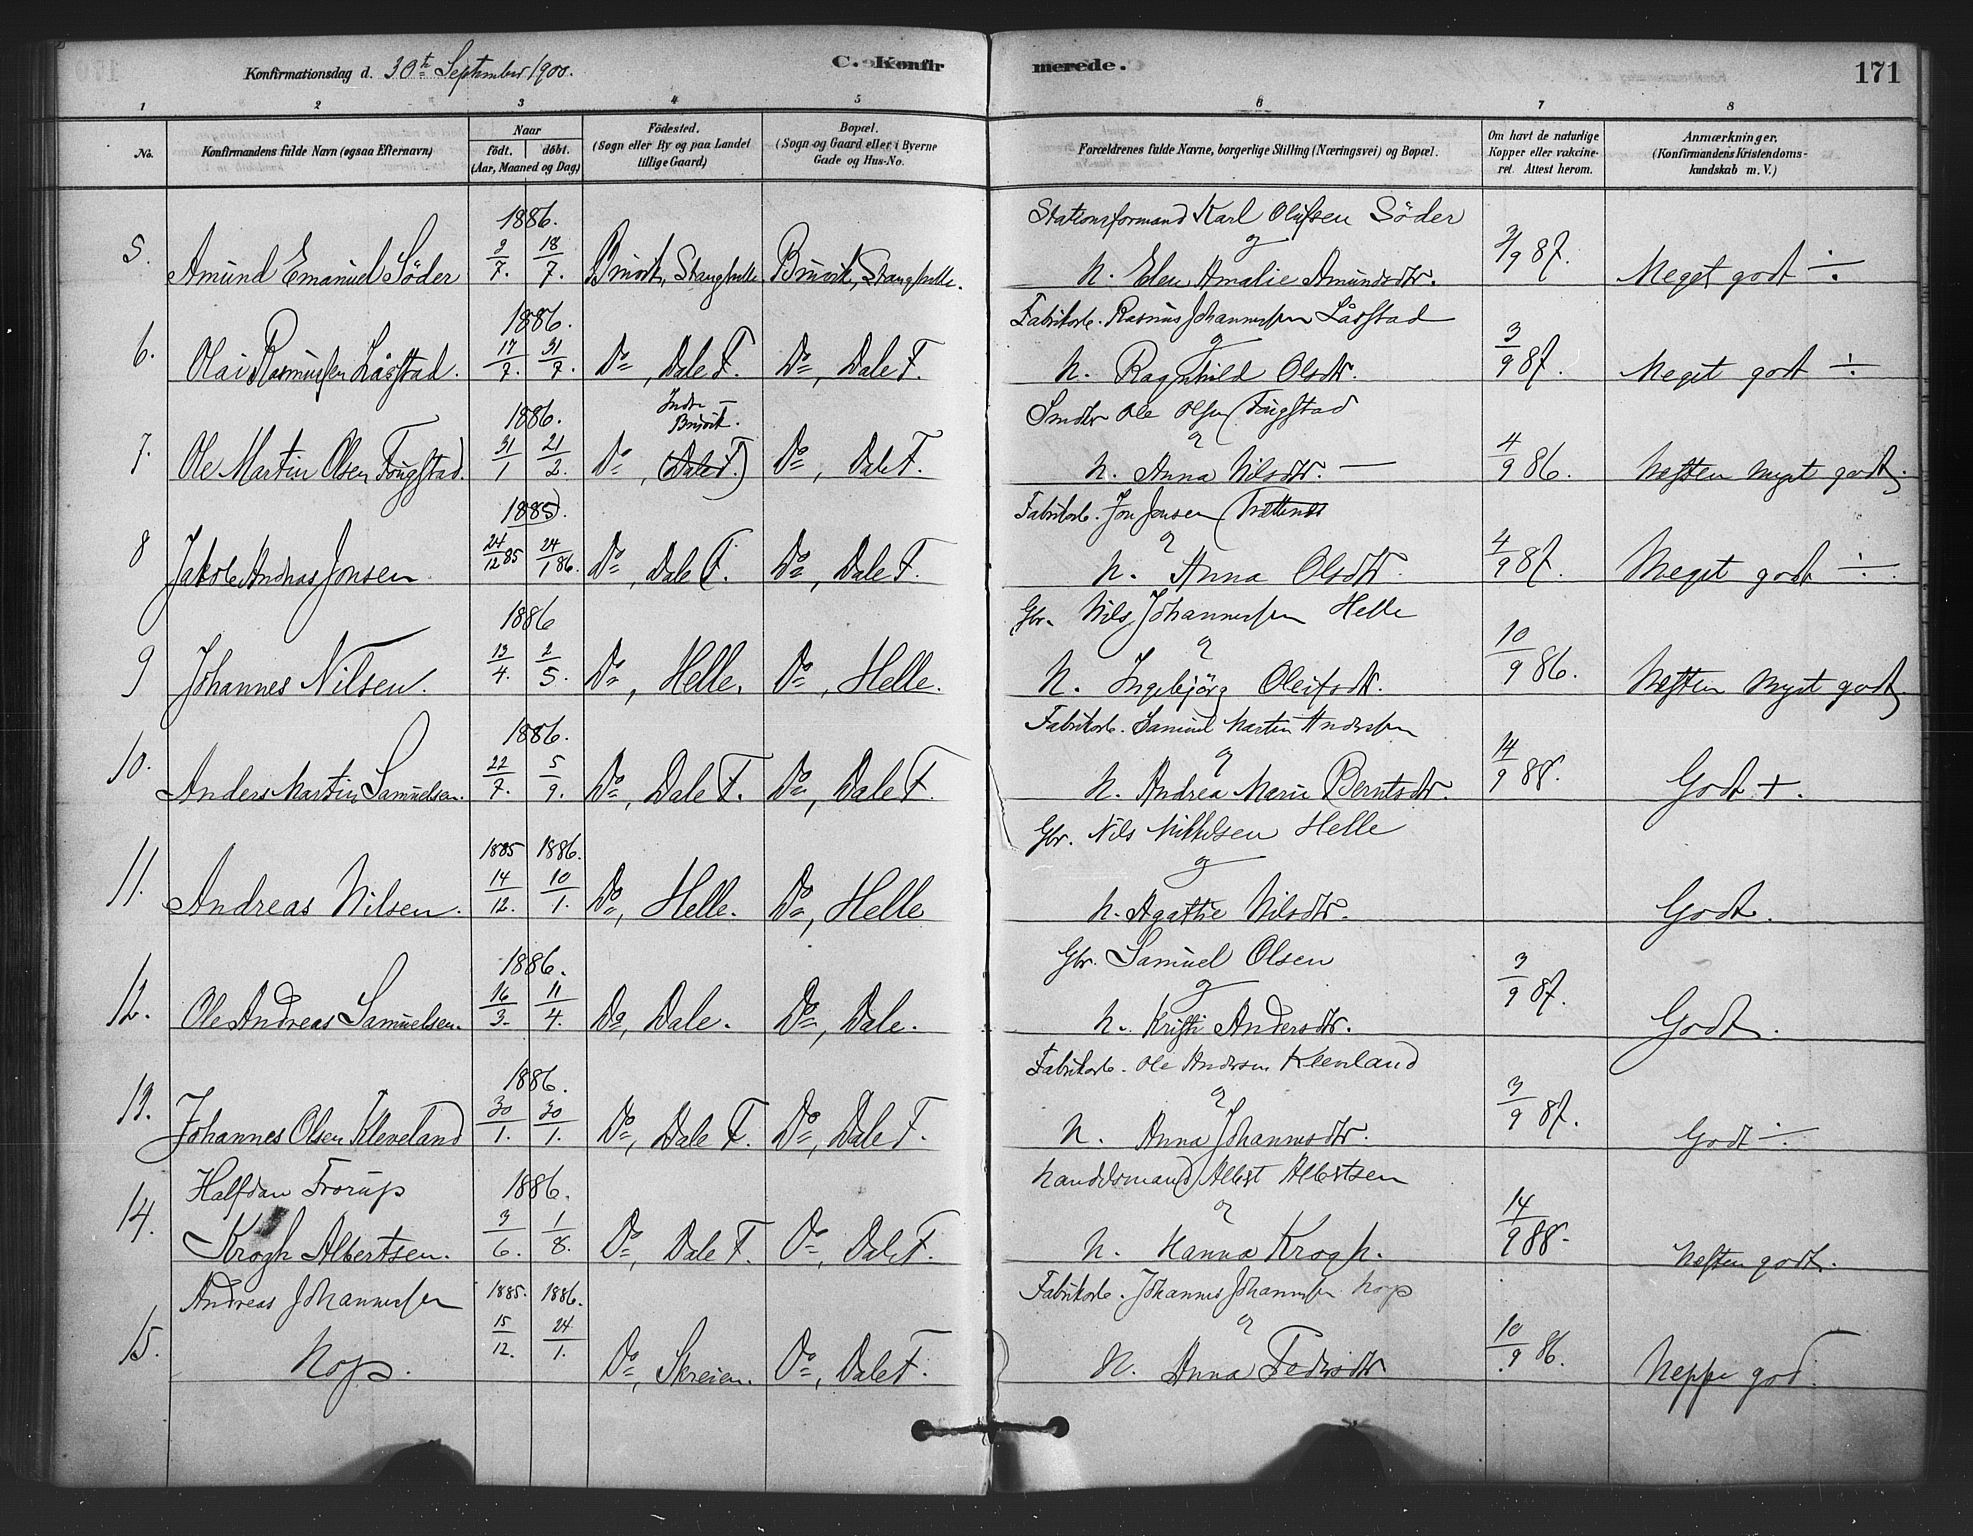 Konfirmationsdag d. 30te September 1900. C. Konfirmerede. 171
1 2 3 4 5 6 7 8
No. Konfirmandens fulde Navn (ogsaa Efternavn) Naar födt. döbt. (Aar, Maaned og Dag) Födested. (Sogn eller By og paa Landet tillige Gaard) Bopæl. (Sogn og Gaard eller i Byerne Gade og Hus-No. Forældrenes fulde Navne, borgerlige Stilling (Næringsvei) og Bopæl. Om havt de naturlige Kopper eller vakcineret. Attest herom. Anmærkninger. (Konfirmandens Kristendomskundskab m. V.)
1886. Stationsformand Karl Olufsen Söder
5. Amund Emanuel Söder 2/7. 18/7. Bruvik, Bruvik, og H. Elen Amalie Amundsdtr. 2/9 87. Meget godt ÷
1886. Fabrikarb. Rasmus Johannessen Låsstad
6. Olai Rasmussen Låsstad. 17/7. 31/7. Do, Dale F. Do, Dale F. og H. Ragnhild Olsdtr. 3/9 87. Meget godt ÷
1886. Indre Bruvik. Ole Olsen Fougstad
7. Ole Martin Olsen Fougstad. 31/1 21/2. Do, (Dale F.) Do, Dale F. og H. Anna Nilsdtr. — 4/9 86. Næsten meget godt.
1885. Fabrikarb. Jon Jonsen
8 Jakob Andreas Jonsen 24/12 85 24/1 86. Do, Dale F. Do, Dale F. og H. Anna Olsdtr. 4/9 87. Meget godt ÷
1886 Gbr. Nils Johannessen Helle
9 Johannes Nilsen. 13/4. 2/5. Do, Helle. Do, Helle. og H. Ingebjörg Olsdtr. 10/9 86. Næsten meget godt.
1886. Fabrikarb. Samuel Martin Andersen
10. Anders Martin Samuelsen. 22/7. 5/9. Do, Dale F. Do, Dale F. og H. Andrea Marie Berntsdtr. 14/9 88. Godt +.
1885 1886. Gbr. Nils Mikkelsen Helle
11. Andreas Nilsen. 14/12. 10/1. Do, Helle. Do, Helle og H. Agathe Nilsdtr. Godt.
1886. Gbr. Samuel Olsen
12. Ole Andreas Samuelsen. 16/3. 11/4. Do, Dale. Do, Dale. og H. Kristi Andersdtr. 3/9 87. Godt.
1886. Fabrikarb. Ole Andersen Kleveland
13. Johannes Olsen Kleveland 30/1. 30/1. Do, Dale F. Do, Dale F. og H. Anna Johannesdtr. 3/9 87. Godt ÷
Halfdan Frorup 1886. Handelsmand Albert Albertsen
14. Krogh Albertsen. 3/6. 1/8. Do, Dale F. Do, Dale F. og H. Hanna Krogh. 14/9 88. Næsten godt.
Andreas Johannessen 1885. 1886. Fabrikarb. Johannes Johannessen Hops
15. Hops. 15/12. 24/1. Do, Skreien. Do, Dale F. og H. Anna Pedersdtr. 10/9 86. Neppe god.